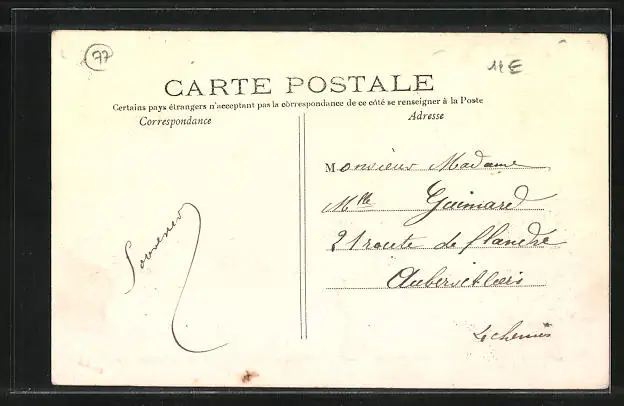 77
11 E
CARTE POSTALE
Certains pays étrangers n'acceptent pas la correspondance de ce côté se renseigner à la Poste
Correspondance
Adresse
Monsieur Madame
Mlle Guimard
21 route de flandre
Aubervilliers
Souvenir